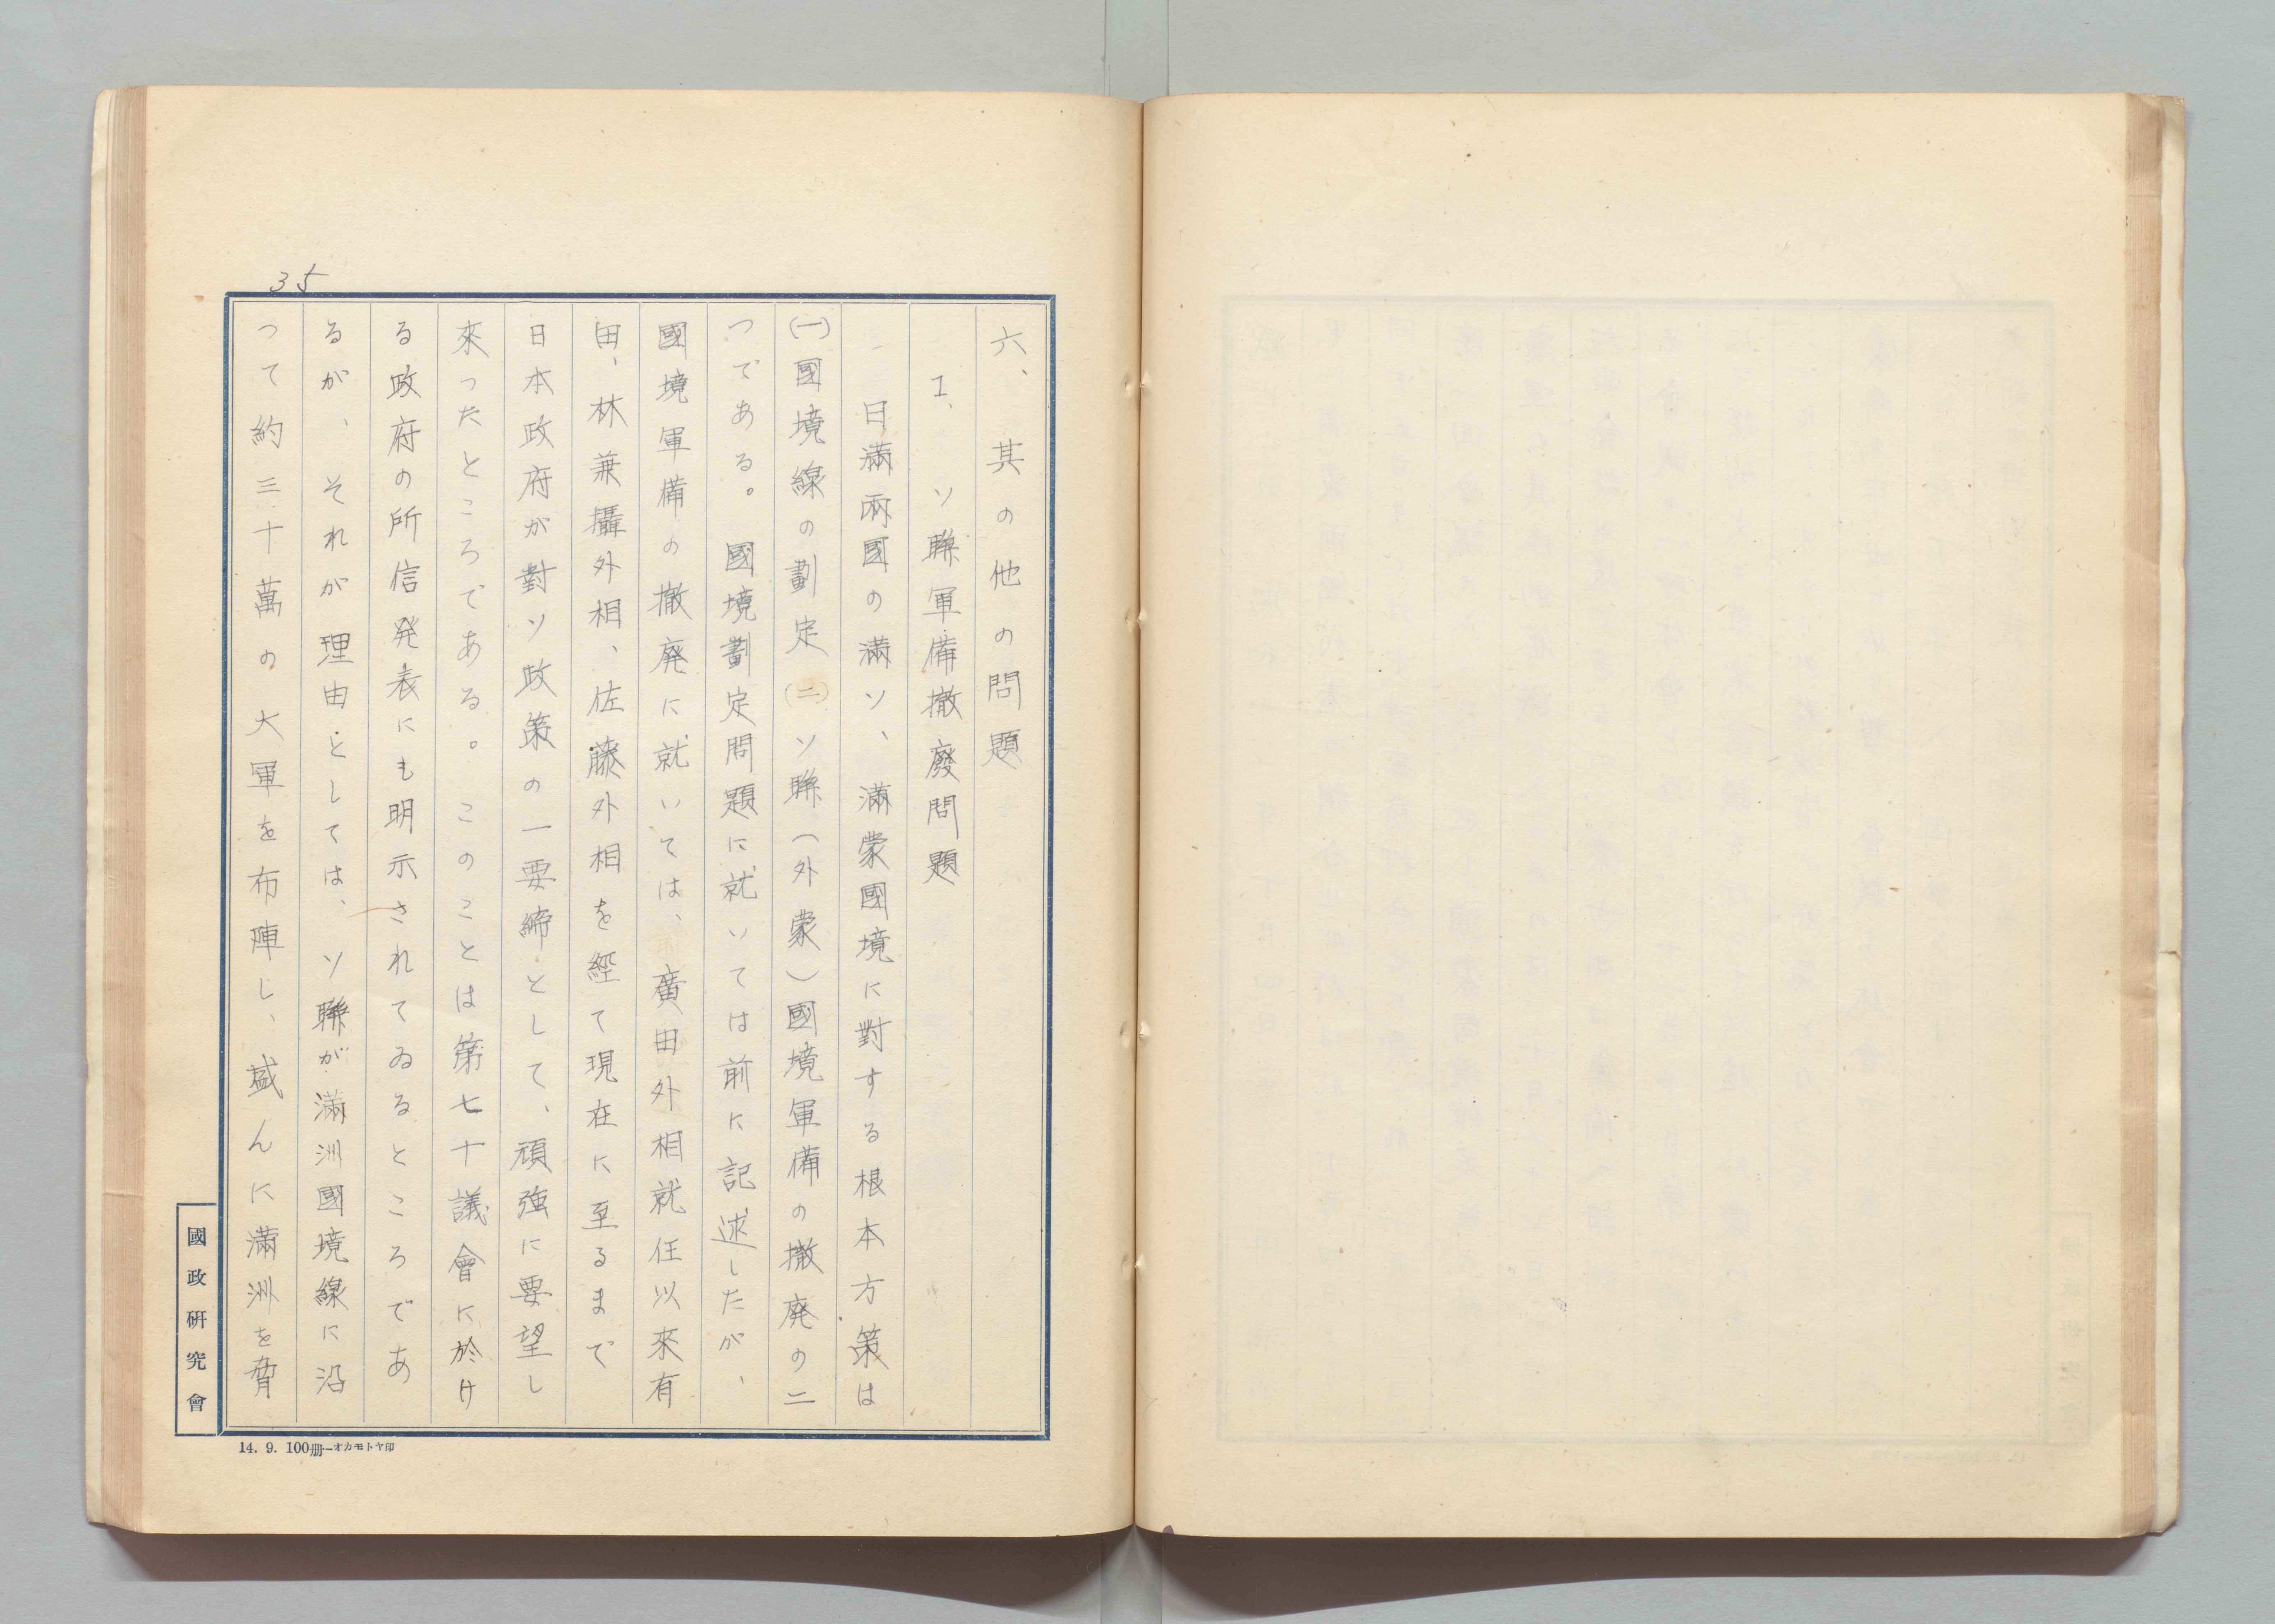 35
六、其の他の問題
1、ソ聯軍備撤廢問題
日滿兩國の滿ソ、滿蒙國境に對する根本方策は
(一)國境線の劃定(二)ソ聯(外蒙)國境軍備の撤廃の二
つである。國境劃定問題に就いては前に記述したが、
國境軍備の撤廃に就いては、廣田外相就任以來有
田、林兼攝外相、佐藤外相を經て現在に至るまで
日本政府が對ソ政策の一要締として、頑強に要望し
來つたところである。このことは第七十議會に於け
る政府の所信発表にも明示されてゐるところであ
るが、それが理由としては、ソ聯が滿洲國境線に沿
つて約三十萬の大軍を布陣し、盛んに滿洲を脅
國政硏究會
14. 9. 100册—オカモトヤ印